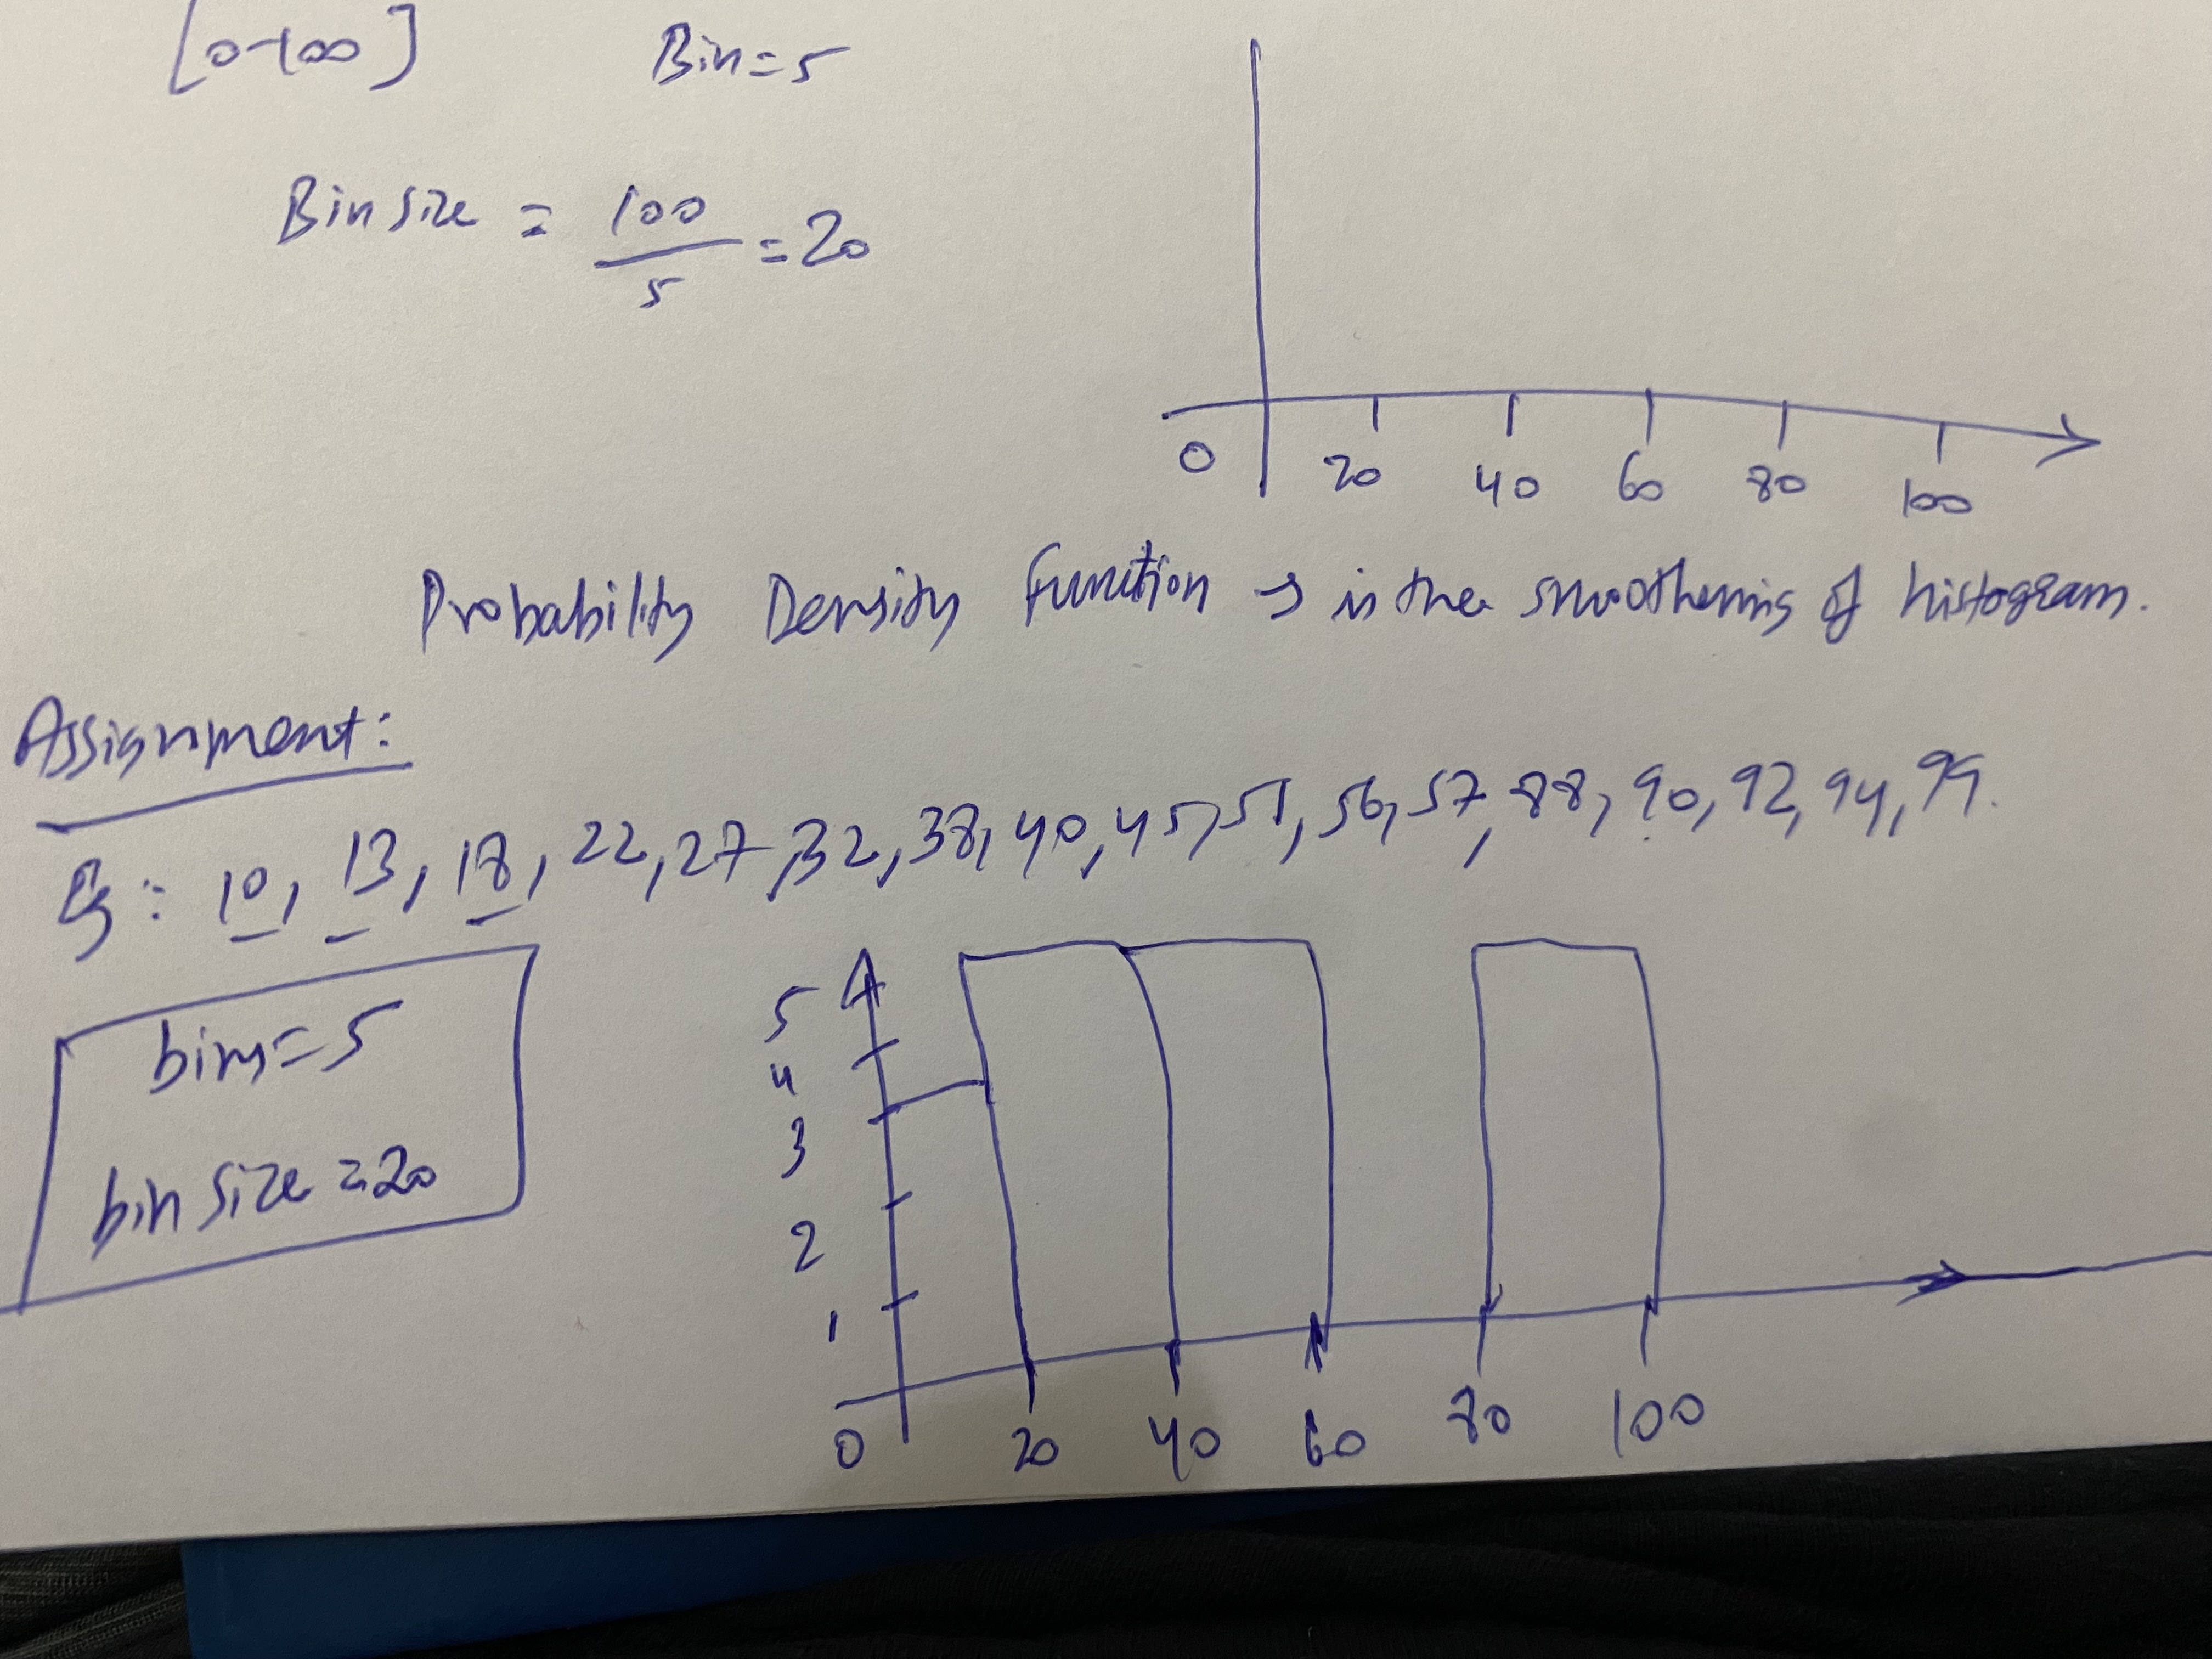 [0-100] Bin=5
Bin size = 100/5 = 20
0 20 40 60 80 100
Probability Density Function → is the smoothening of histogram.
Assignment:
Eg: 10, 13, 18, 22, 27, 32, 38, 40, 45, 51, 56, 57, 88, 90, 92, 94, 99.
bins=5
bin size=20
5
4
3
2
1
0 20 40 60 80 100